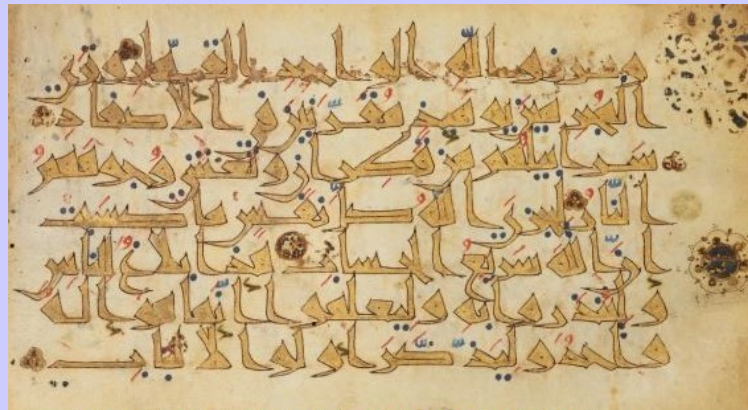 وبرزوا لله الواحد القهار وترى
المجرمين يومئذ مقرنين في الاصفاد
سرابيلهم من قطران وتغشى وجوههم
النار ليجزي الله كل نفس ما كسبت
ان الله سريع الحساب هذا بلاغ للناس
ولينذروا به وليعلموا انما هو اله
واحد وليذكر اولوا الالباب